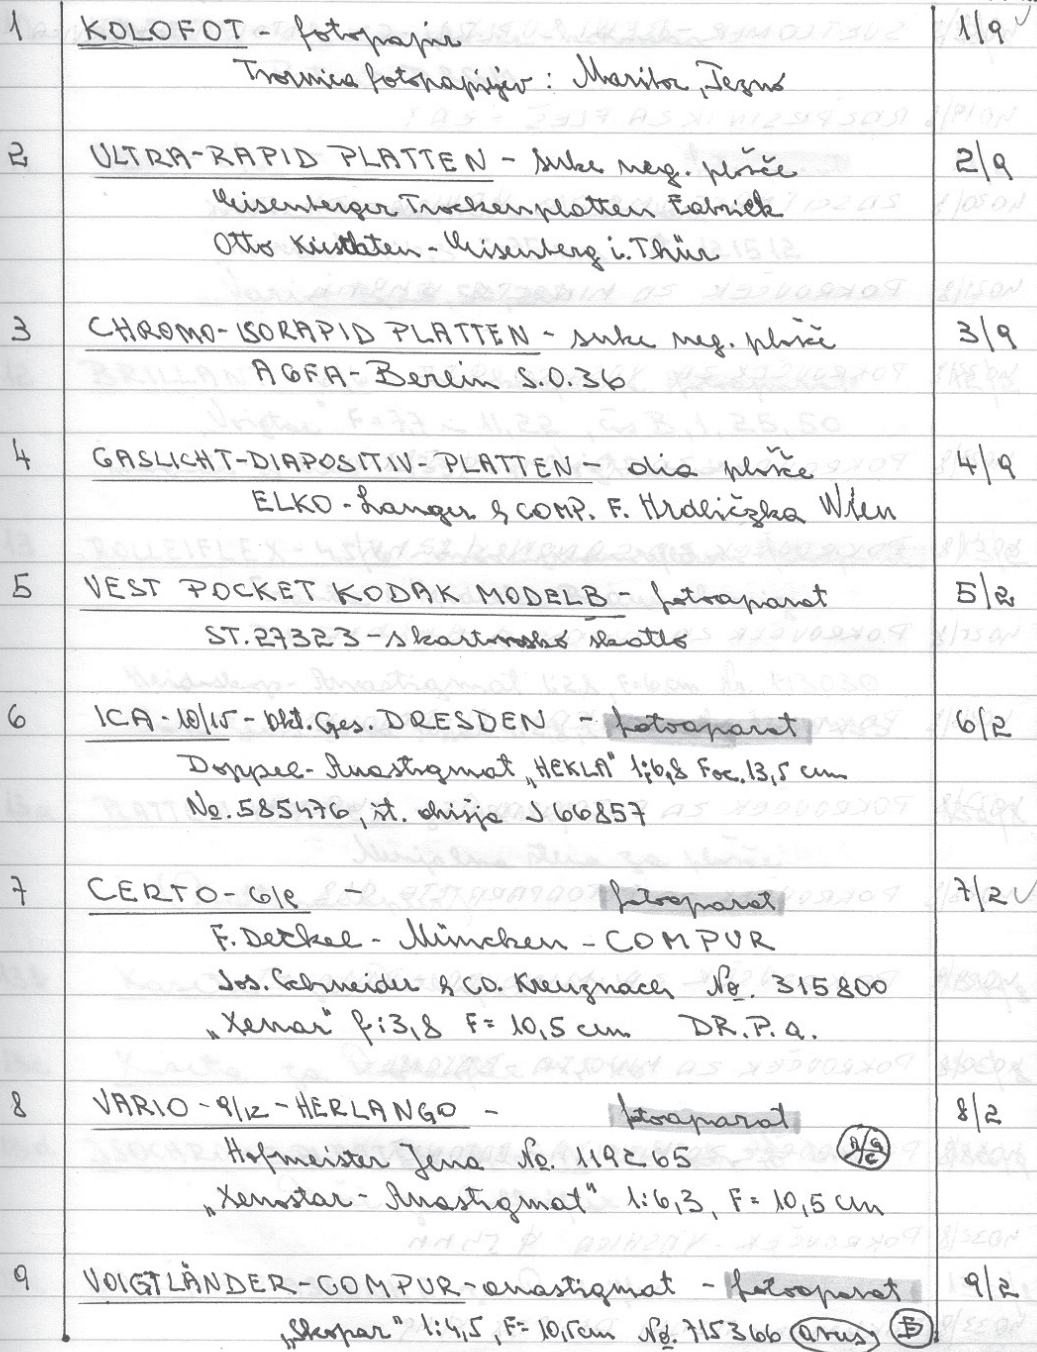 1 KOLOFOT - fotopapir 1/9 ✓
Tvornica fotopapirjev : Maribor, Tezno
2 ULTRA-RAPID PLATTEN - suhe neg. plošče 2/9
Eisenberger Trockenplatten Fabrick
Otto Kirschten - Eisenberg i. Thür
3 CHROMO-ISORAPID PLATTEN - suhe neg. plošče 3/9
AGFA - Berlin S.O.36
4 GASLICHT-DIAPOSITIV-PLATTEN - dia plošče 4/9
ELKO - Langer & COMP. F. Hrdliczka Wien
5 VEST POCKET KODAK MODEL B - fotoaparat 5/2
ST. 27323 - s kartonsko škatlo
6 ICA - 10/15 - Akt. Ges. DRESDEN - fotoaparat 6/2
Doppel-Anastigmat „HEKLA" 1:6,8 Foc. 13,5 cm
No. 585476, št. ohišja J 66857
7 CERTO - 6/9 - fotoaparat 7/2 ✓
F. Deckel - München - COMPUR
Jos. Schneider & CO. Kreuznach No. 315800
„Xenar" f:3,8 F= 10,5 cm D.R.P.a.
8 VARIO - 9/12 - HERLANGO - fotoaparat 8/2
Hofmeister Jena No. 119265
„Xenostar - Anastigmat" 1:6,3, F= 10,5 cm
9 VOIGTLÄNDER - COMPUR - anastigmat - fotoaparat 9/2
„Skopar" 1:4,5, F= 10,5cm No. 715366 avus B